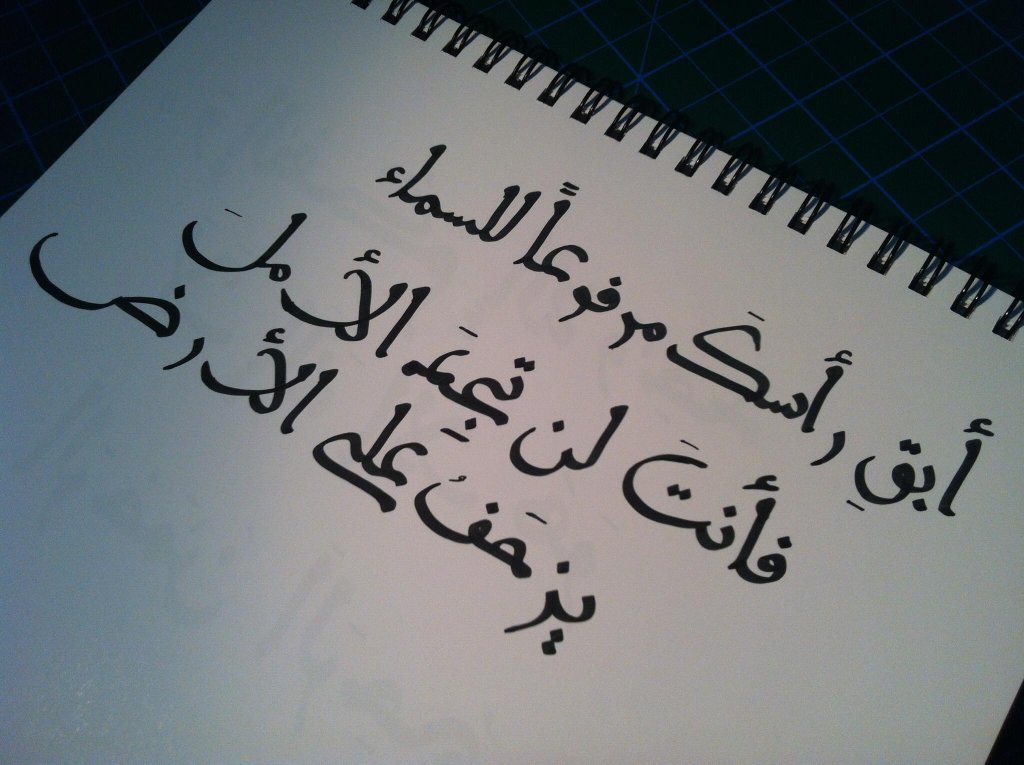 أبقِ رأسكَ مرفوعاً للسماء
فأنتَ لن تجِدَ الأملَ
يزحَفُ على الأرض